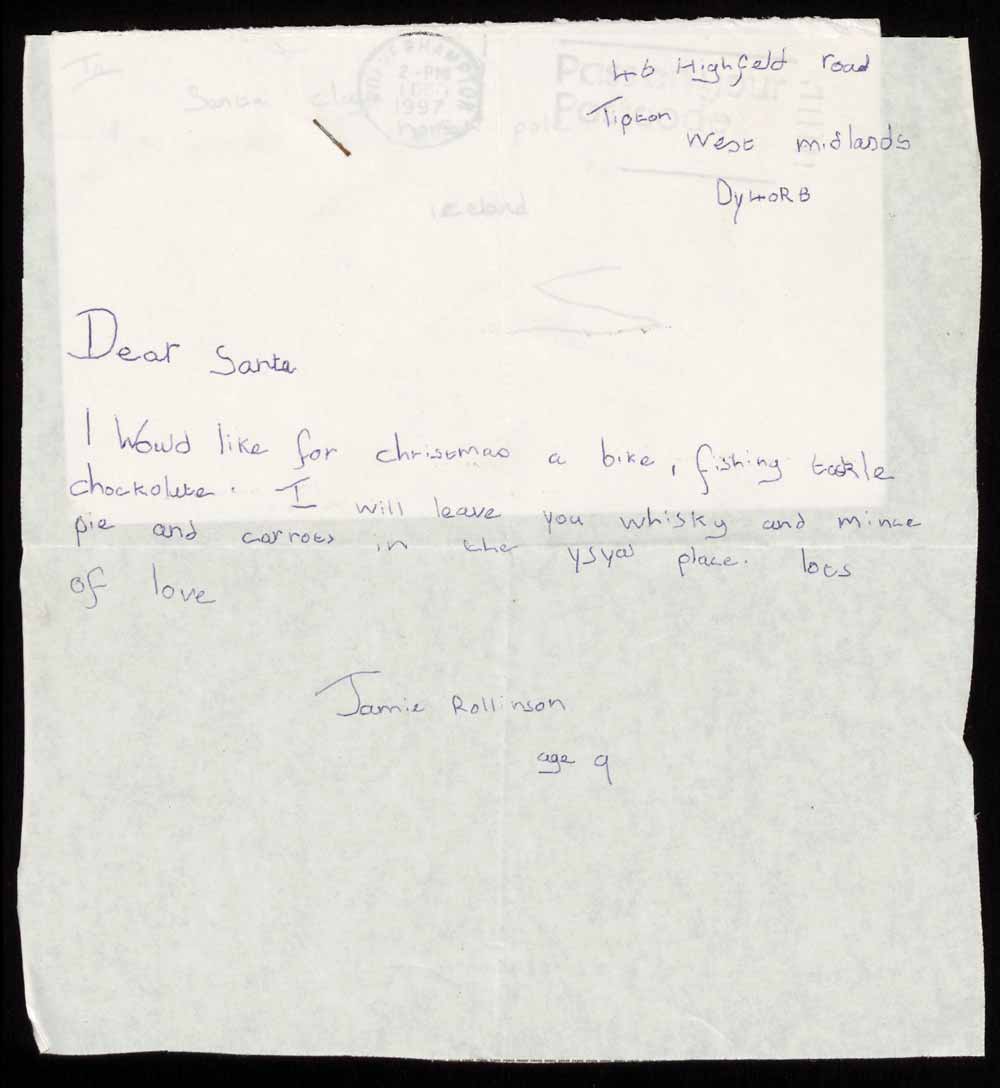 46 Highfeld road
Tipton
West midlands
Dy40RB
To
Santa clu
2-PM
1997
north pole
iceland
Dear Santa
I Would like for christmas a bike, fishing tackle
chockolute. I will leave you whisky and mince
pie and carrots in the ysyal place. lots
of love
Jamie Rollinson
age 9